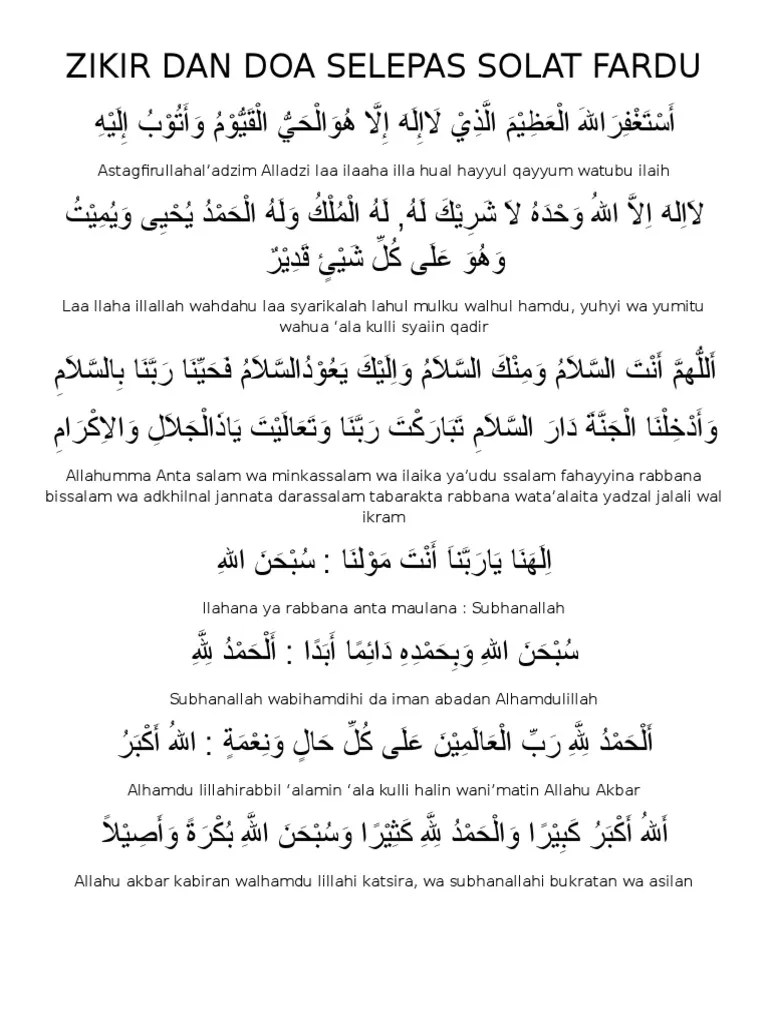 ZIKIR DAN DOA SELEPAS SOLAT FARDU
أَسْتَغْفِرَاللهَ الْعَظِيْمَ الَّذِيْ لَاإِلَهَ إِلَّا هُوَالْحَيُّ الْقَيُّوْمُ وَأَتُوْبُ إِلَيْهِ
Astagfirullahal’adzim Alladzi laa ilaaha illa hual hayyul qayyum watubu ilaih
لاَاِلهَ اِلاَّ اللهُ وَحْدَهُ لاَ شَرِيْكَ لَهُ, لَهُ الْمُلْكُ وَلَهُ الْحَمْدُ يُحْيِى وَيُمِيْتُ
وَهُوَ عَلَى كُلِّ شَيْئٍ قَدِيْرٌ
Laa Ilaha illallah wahdahu laa syarikalah lahul mulku walhul hamdu, yuhyi wa yumitu
wahua ‘ala kulli syaiin qadir
أَللُّهمَّ أَنْتَ السَّلاَمُ وَمِنْكَ السَّلاَمُ وَاِلَيْكَ يَعُوْدُالسَّلاَمُ فَحَيِّنَا رَبَّنَا بِالسَّلاَمِ
وَأَدْخِلْنَا الْجَنَّةَ دَارَ السَّلاَمِ تَبَارَكْتَ رَبَّنَا وَتَعَالَيْتَ يَاذَالْجَلاَلِ وَالاِكْرَامِ
Allahumma Anta salam wa minkassalam wa ilaika ya’udu ssalam fahayyina rabbana
bissalam wa adkhilnal jannata darassalam tabarakta rabbana wata’alaita yadzal jalali wal
ikram
اِلَهَنَا يَارَبَّنَاَ أَنْتَ مَوْلَنَا : سُبْحَنَ اللهِ
Ilahana ya rabbana anta maulana : Subhanallah
سُبْحَنَ اللهِ وَبِحَمْدِهِ دَائِمًا أَبَدًا : أَلْحَمْدُ لِلَّهِ
Subhanallah wabihamdihi da iman abadan Alhamdulillah
أَلْحَمْدُ لِلَّهِ رَبِّ الْعَالَمِيْنَ عَلَى كُلِّ حَالٍ وَنِعْمَةٍ : اللهُ أَكْبَرُ
Alhamdu lillahirabbil ‘alamin ‘ala kulli halin wani’matin Allahu Akbar
أَللهُ أَكْبَرُ كَبِيْرًا وَالْحَمْدُ لِلَّهِ كَثِيْرًا وَسُبْحَنَ اللَّهِ بُكْرَةً وَأَصِيْلاً
Allahu akbar kabiran walhamdu lillahi katsira, wa subhanallahi bukratan wa asilan